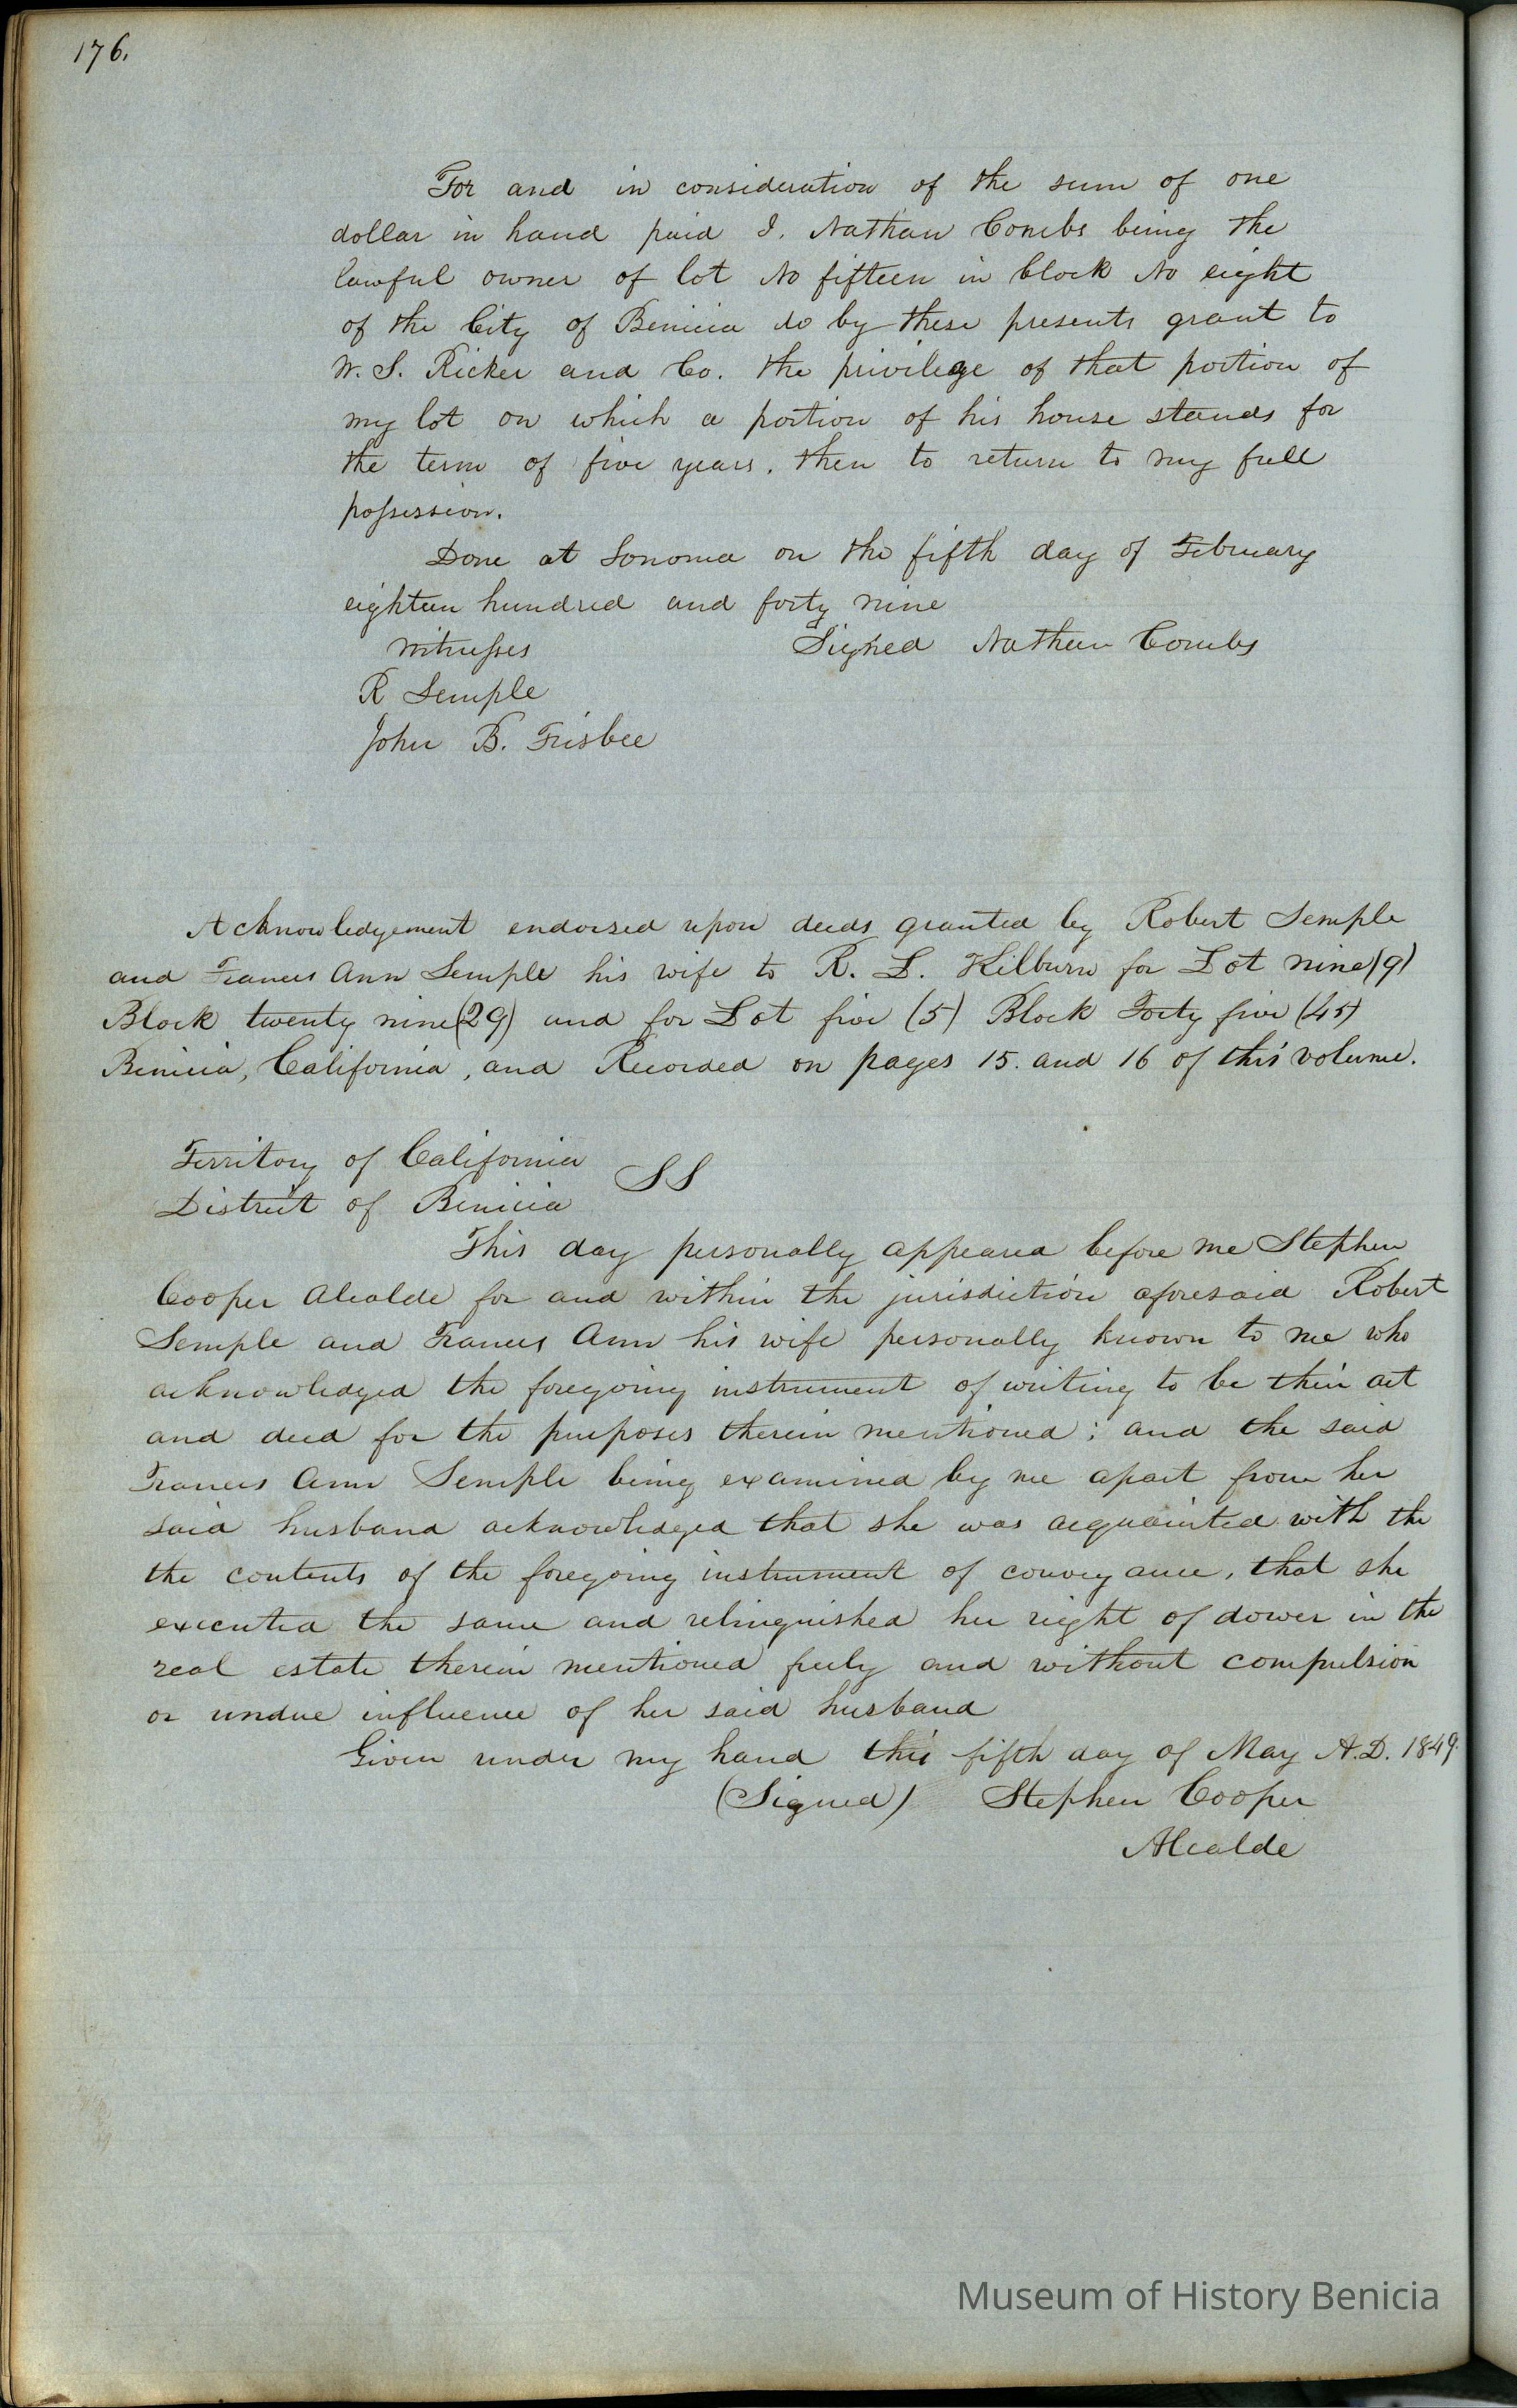 176.
For and in consideration of the sum of one
dollar in hand paid I. Nathan Combs being the
lawful owner of lot No fifteen in block No eight
of the City of Benicia do by these presents grant to
W. S. Ricker and Co. the privilege of that portion of
my lot on which a portion of his house stands for
the term of five years. then to return to my full
possession.
Done at Sonoma on the fifth day of February
eighteen hundred and forty nine
Witnesses Signed Nathan Combs
R Semple
John B. Frisbee
Acknowledgement endorsed upon deeds granted by Robert Semple
and Frances Ann Semple his wife to R. L. Kilburn for Lot nine (9)
Block twenty nine (29) and for Lot five (5) Block Forty five (45)
Benicia, California, and Recorded on pages 15. and 16 of this volume.
Territory of California SS
District of Benicia
This day personally appeared before me Stephen
Cooper Alcalde for and within the jurisdiction aforesaid Robert
Semple and Frances Ann his wife personally known to me who
acknowledged the foregoing instrument of writing to be their act
and deed for the purposes therein mentioned; and the said
Frances Ann Semple being examined by me apart from her
said husband acknowledged that she was acquainted with the
the contents of the foregoing instrument of conveyance, that she
executed the same and relinquished her right of dower in the
real estate therein mentioned freely and without compulsion
or undue influence of her said husband
Given under my hand this fifth day of May A.D. 1849.
(Signed) Stephen Cooper
Alcalde
Museum of History Benicia